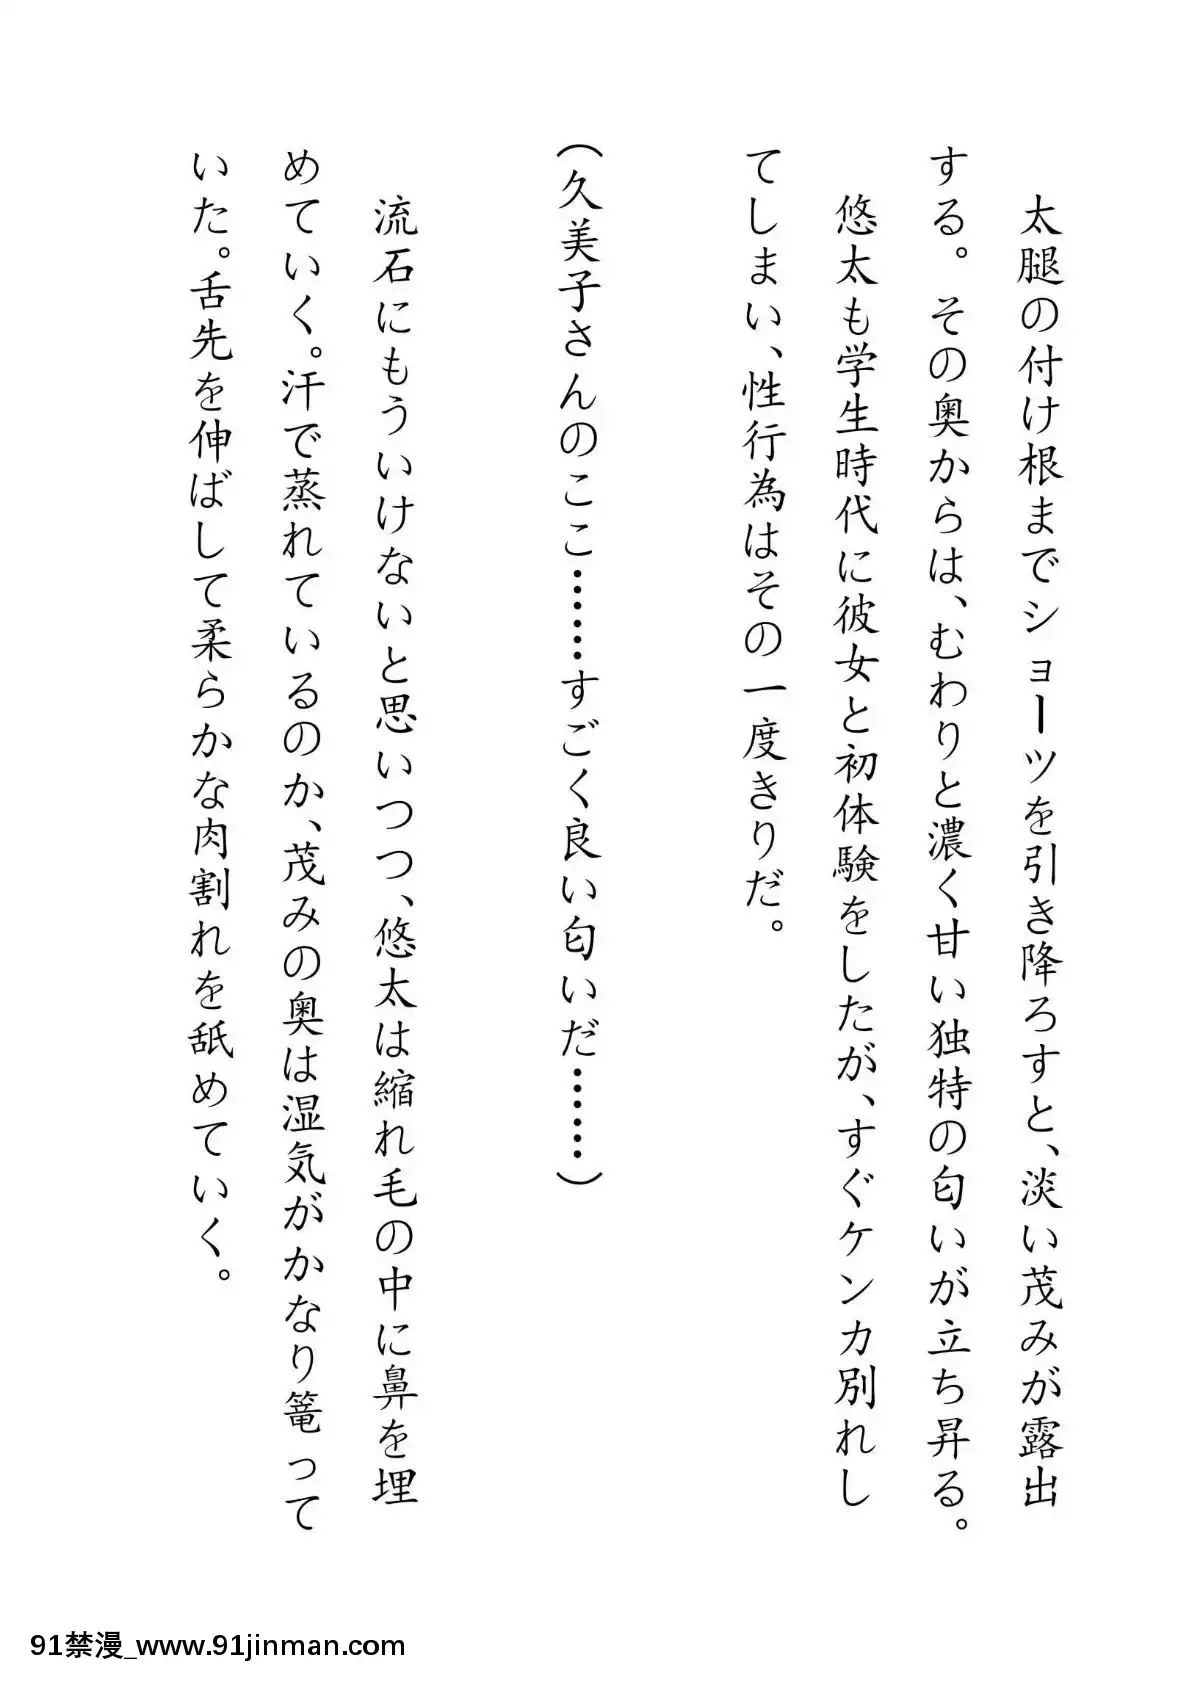 太腿の付け根までショーツを引き降ろすと、淡い茂みが露出
する。その奥からは、むわりと濃く甘い独特の匂いが立ち昇る。
悠太も学生時代に彼女と初体験をしたが、すぐケンカ別れし
てしまい、性行為はその一度きりだ。
（久美子さんのここ……すごく良い匂いだ……）
流石にもういけないと思いつつ、悠太は縮れ毛の中に鼻を埋
めていく。汗で蒸れているのか、茂みの奥は湿気がかなり篭って
いた。舌先を伸ばして柔らかな肉割れを舐めていく。
91禁漫_www.91jinman.com